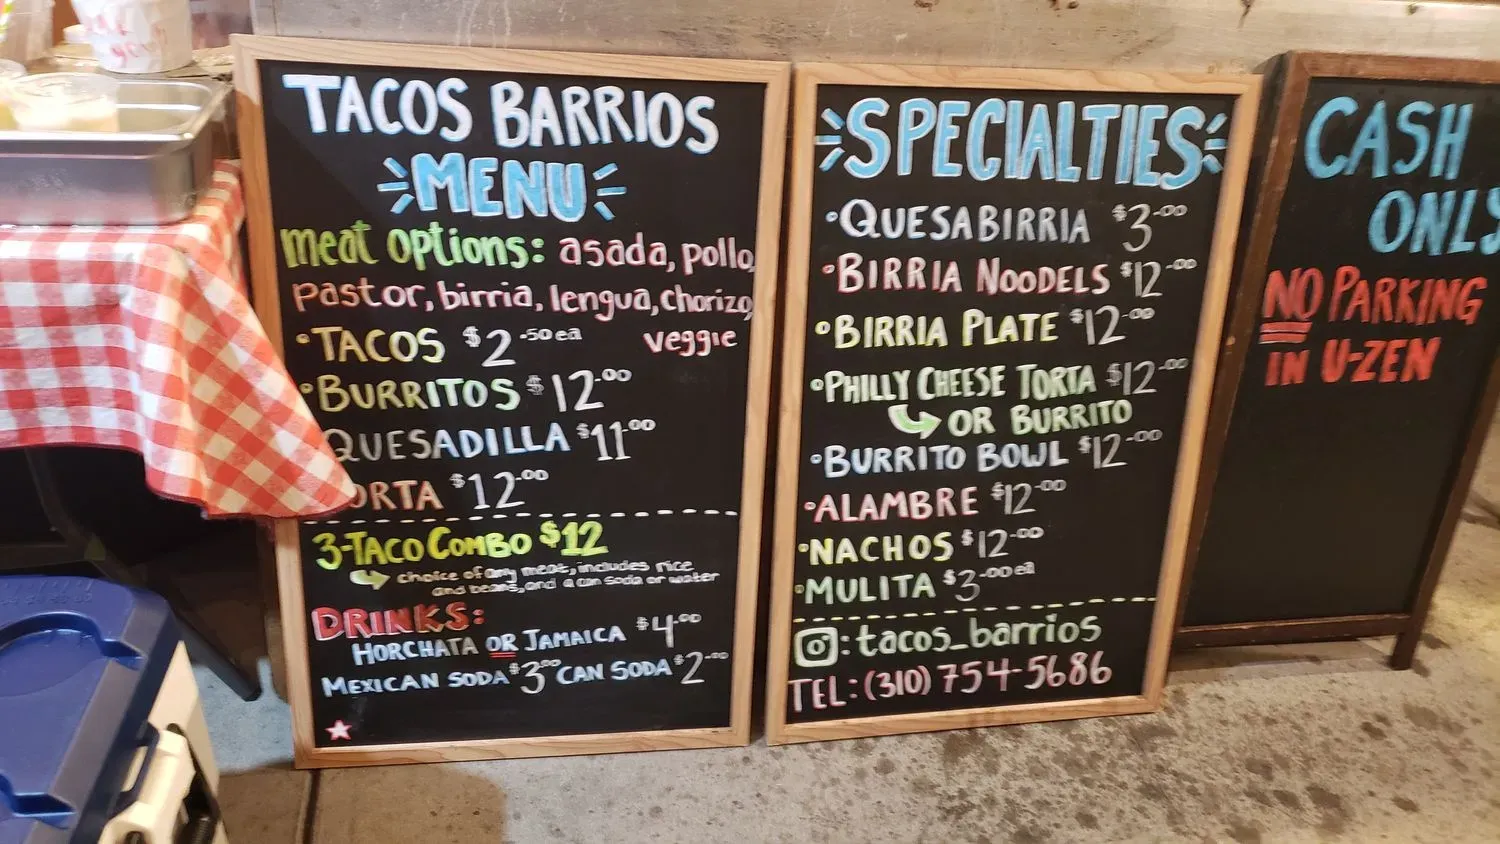 TACOS BARRIOS
MENU
meat options: asada, pollo,
pastor, birria, lengua, chorizo,
veggie
•TACOS $2.50 ea
•BURRITOS $12.00
QUESADILLA $11.00
ORTA $12.00
3-TACO COMBO $12
choice of any meat, includes rice
and beans, and a can soda or water
DRINKS:
HORCHATA OR JAMAICA $4.00
MEXICAN SODA $3.00 CAN SODA $2.00
SPECIALTIES
•QUESABIRRIA $3.00
•BIRRIA NOODELS $12.00
•BIRRIA PLATE $12.00
•PHILLY CHEESE TORTA $12.00
OR BURRITO
•BURRITO BOWL $12.00
•ALAMBRE $12.00
•NACHOS $12.00
•MULITA $3.00 ea
: tacos_barrios
TEL: (310) 754-5686
CASH
ONLY
NO PARKING
IN U-ZEN